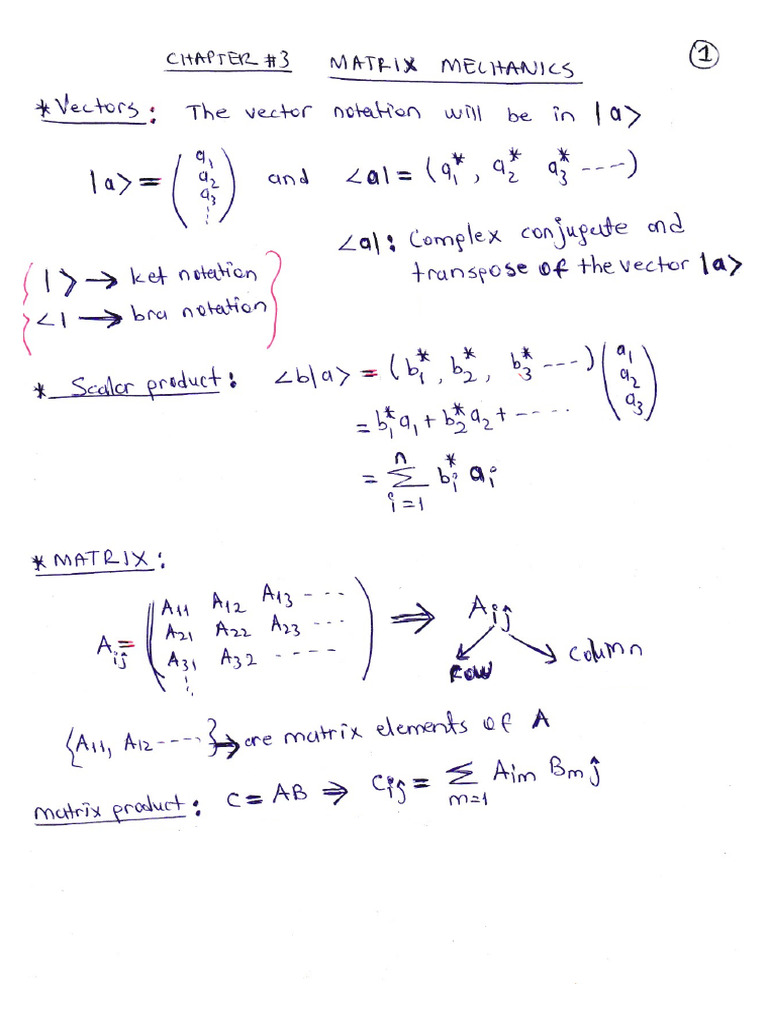 CHAPTER #3 MATRIX MECHANICS ①
* Vectors: The vector notation will be in |a>
|a> = (a₁ a₂ a₃ ⋮) and <a| = (a₁*, a₂* a₃* ----)
<a|: Complex conjugate and
transpose of the vector |a>
{ |> → ket notation
<| → bra notation }
* Scalar product: <b|a> = (b₁*, b₂*, b₃* ----) (a₁ a₂ a₃)
= b₁*a₁ + b₂*a₂ + -----
= ∑ᵢ₌₁ⁿ bᵢ* aᵢ
* MATRIX:
A₁₁ A₁₂ A₁₃ ----
Aᵢⱼ = ( A₂₁ A₂₂ A₂₃ --- ) ⇒ Aᵢⱼ
A₃₁ A₃₂ -----
⋮
row column
{A₁₁, A₁₂ ----} → are matrix elements of A
matrix product: C = AB ⇒ Cᵢⱼ = ∑ₘ₌₁ Aᵢₘ Bₘⱼ